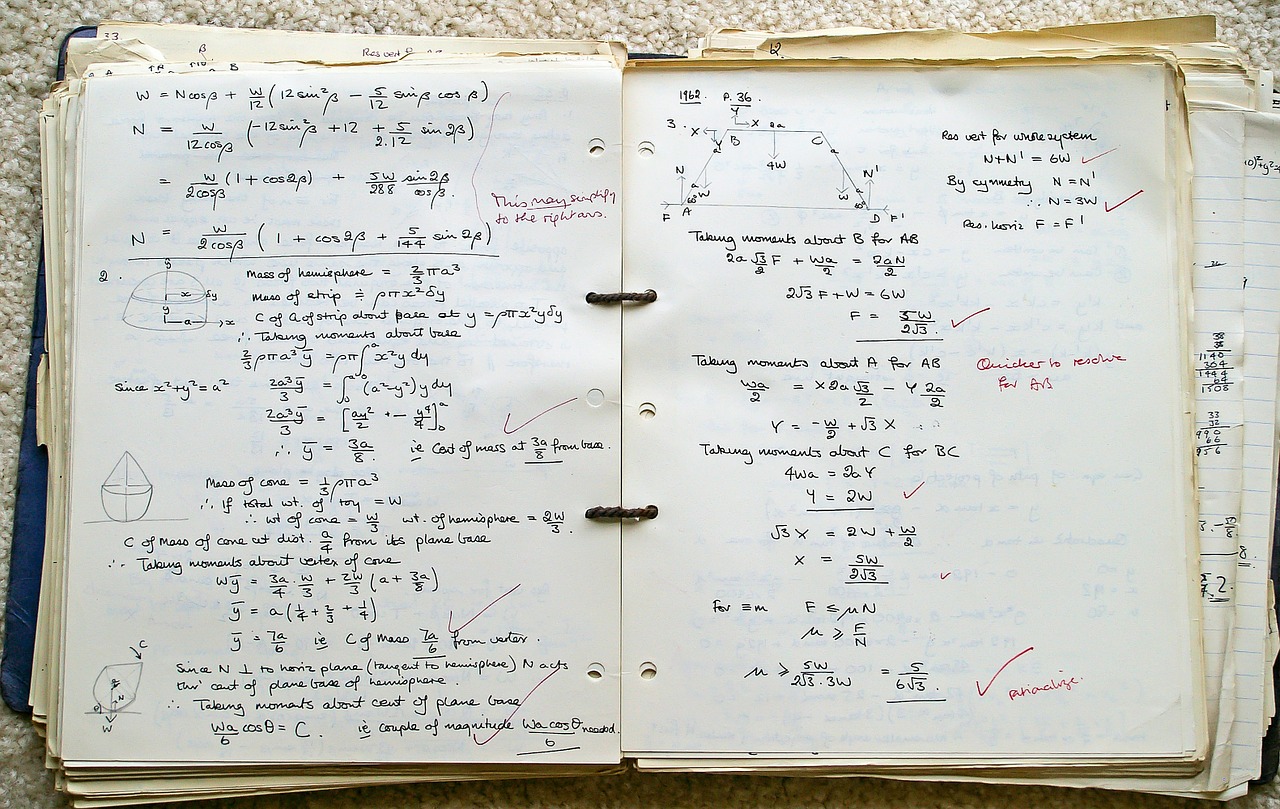 33
β
Res vert
A
B
W = N cos β + W/12 (12 sin²β − 5/12 sin β cos β)
N = W/(12 cos β) (−12 sin²β + 12 + 5/2.12 sin 2β)
= W/(2 cos β) (1 + cos 2β) + 5W/288 sin 2β/cos β.
This may simplify
to the right ans.
N = W/(2 cos β) (1 + cos 2β + 5/144 sin 2β)
2.
y
x
δy
y
a
x
Mass of hemisphere = 2/3 πa³
Mass of strip ≑ ρπx²δy
C of G of strip about base at y = ρπx²yδy
∴ Taking moments about base
2/3 ρπa³ ȳ = ρπ∫₀ᵃ x²y dy
Since x²+y² = a² 2a³ȳ/3 = ∫₀ᵃ (a²−y²) y dy
2a³ȳ/3 = [ay²/2 + − y⁴/4]₀ᵃ
∴ ȳ = 3a/8 ie Cent of mass at 3a/8 from base.
Mass of cone = 1/3 ρπa³
∴ If total wt. of toy = W
∴ wt of cone = W/3 wt. of hemisphere = 2W/3.
C of Mass of cone at dist. a/4 from its plane base
∴ Taking moments about vertex of cone
Wȳ = 3a/4 · W/3 + 2W/3 (a + 3a/8)
ȳ = a(1/4 + 2/3 + 1/4)
ȳ = 7a/6 ie C of Mass 7a/6 from vertex.
C
N
θ
W
Since N ⊥ to horiz plane (tangent to hemisphere) N acts
thro' cent of plane base of hemisphere.
∴ Taking moments about cent of plane base
Wa/6 cos θ = C. ie couple of magnitude Wa cos θ/6 needed.
12
1962. P. 36.
3.
Y
X
X
Y
2a
B
C
4W
a
a
a
a
N
W
W
N'
60°
60°
F
A
D
F'
Res vert for whole system
N+N' = 6W
By symmetry N = N'
∴ N = 3W
Res. horiz F = F'
Taking moments about B for AB
2a √3/2 F + Wa/2 = 2aN/2
2√3 F + W = 6W
F = 5W/2√3.
Taking moments about A for AB
Quicker to resolve
for AB
Wa/2 = X 2a √3/2 − Y 2a/2
Y = −W/2 + √3 X
Taking moments about C for BC
4Wa = 2aY
Y = 2W
√3 X = 2W + W/2
X = 5W/2√3
For ≡m F ≤ μN
μ ≥ F/N
μ ≥ 5W/2√3.3W = 5/6√3.
rationalize.
38
38
1140
304
1444
64
1508
33
32
990
66
956
8.
2.